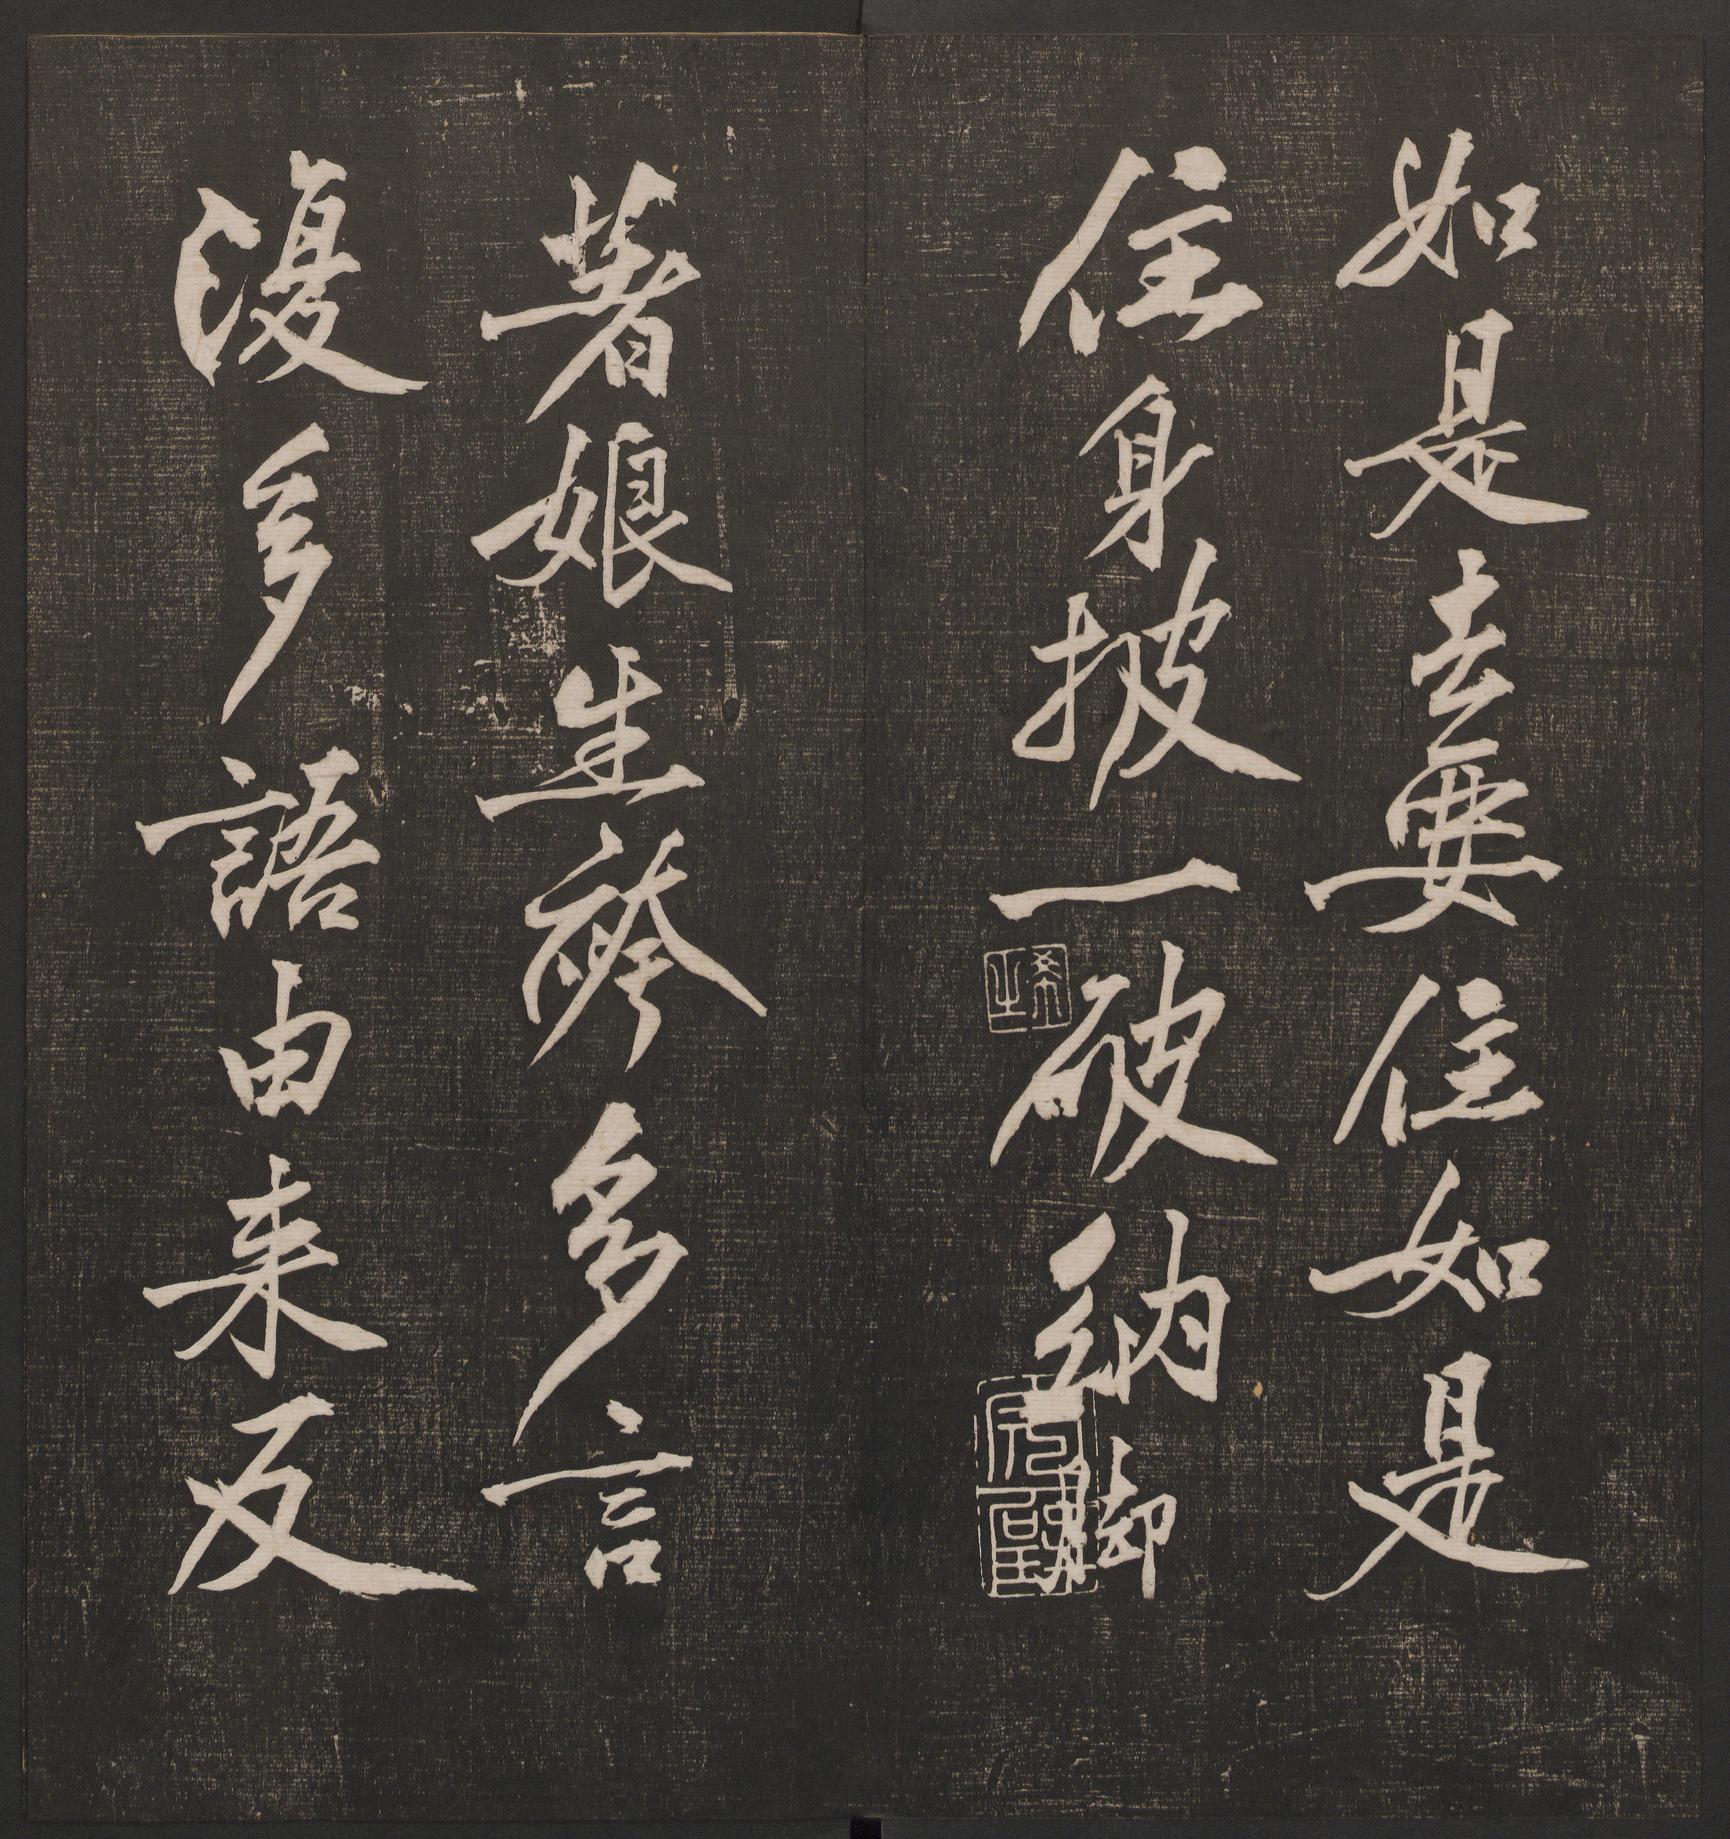 如是去要住如是
住身披一破衲脚
著娘生袴多言
復多語由来反